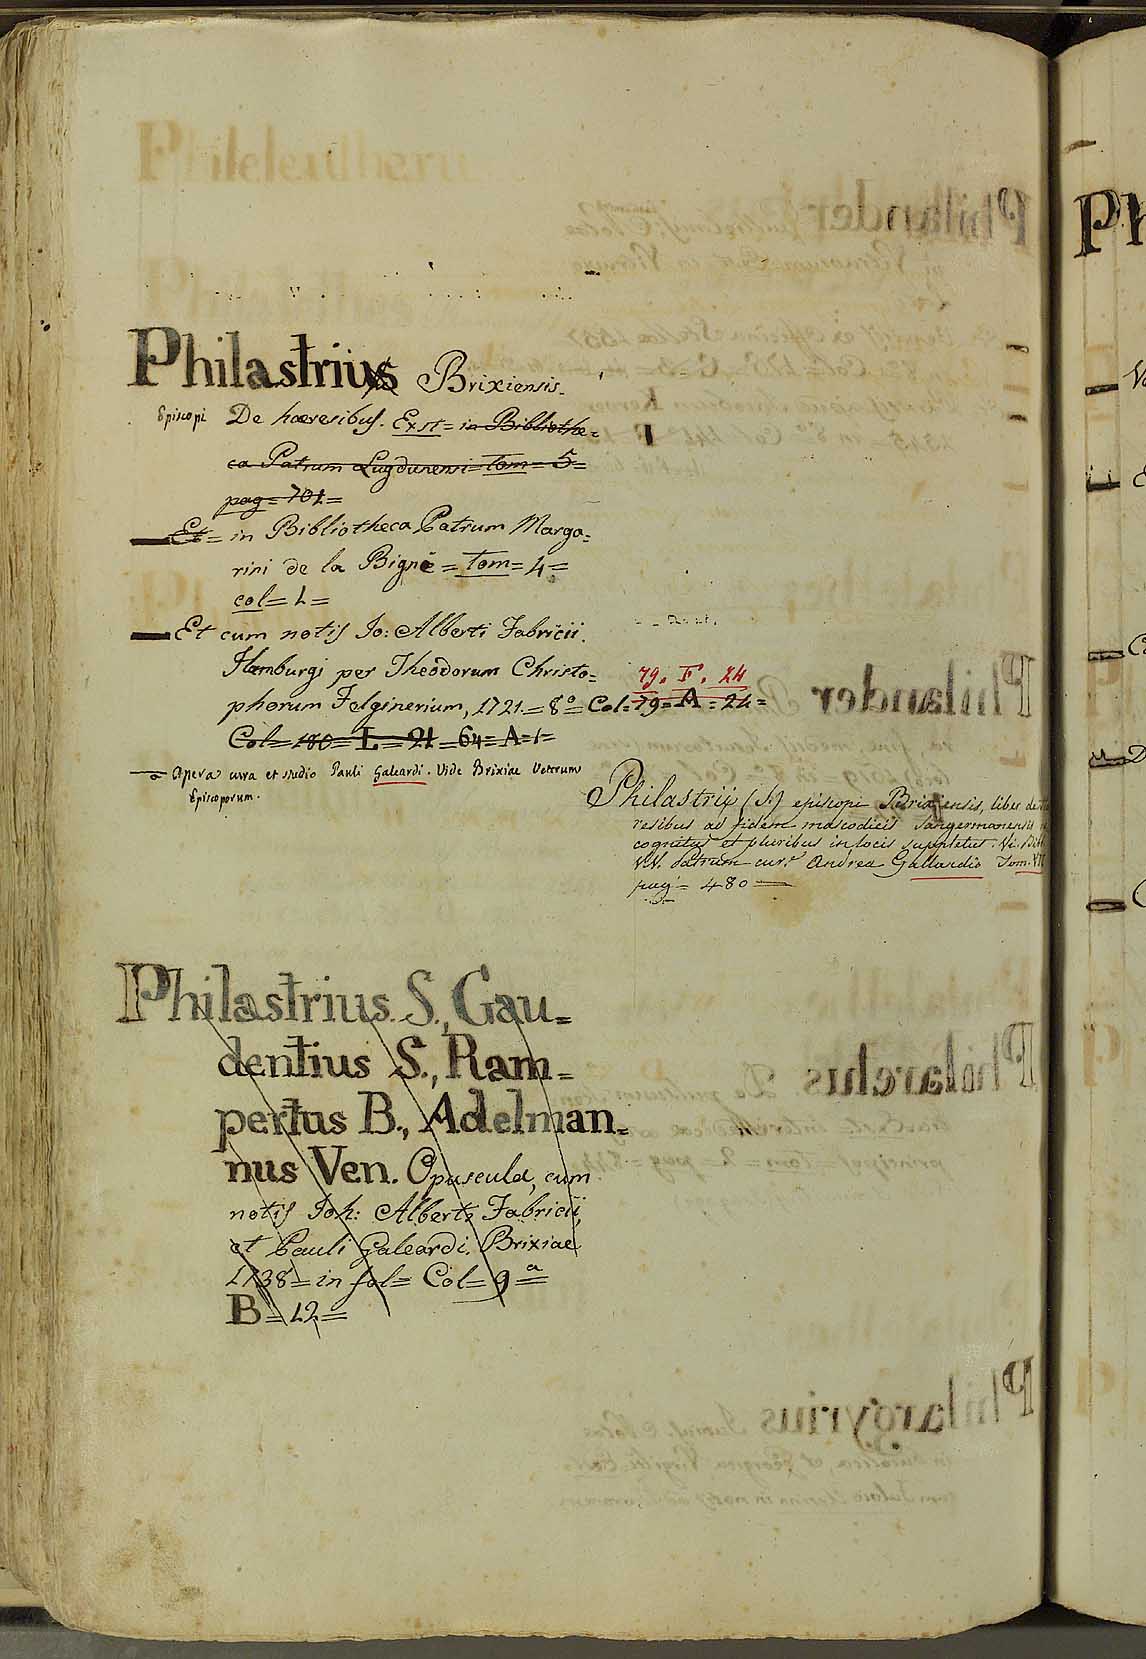 Philastrius Brixiensis.
Episcopi De hæresibus. Exst= in Bibliothe=
ca Patrum Lugdunensi= tom= 5=
pag= 701=
Et= in Bibliotheca Patrum Marga=
rini de la Bigne= tom= 4=
col= 1=
Et cum notis Io: Alberti Fabricii.
Hamburgi per Theodorum Christo=
phorum Felginerium, 1721.= 8º=
79. F. 24
Col=79=A=24=
Col=180=L=21=64=A=1=
Opera cura et studio Pauli Galeardi. Vide Brixiae Veterum
Episcoporum.
Philastrii (S.) episcopi Brixiensis, liber de
resibus ad fidem Sangermanensis
cognitus et pluribus in locis suppletus. Vi. Bib
V.V. Patrum cur.e Andrea Gallardio Tom. VII
pag= 480=
Philastrius. S., Gau=
dentius S., Ram=
pertus B., Adelman=
nus Ven. Opuscula, cum
notis Joh: Alberti Fabricii,
et Pauli Galeardi. Brixiae
1738= in fol= Col= 9 a=
B= 12=